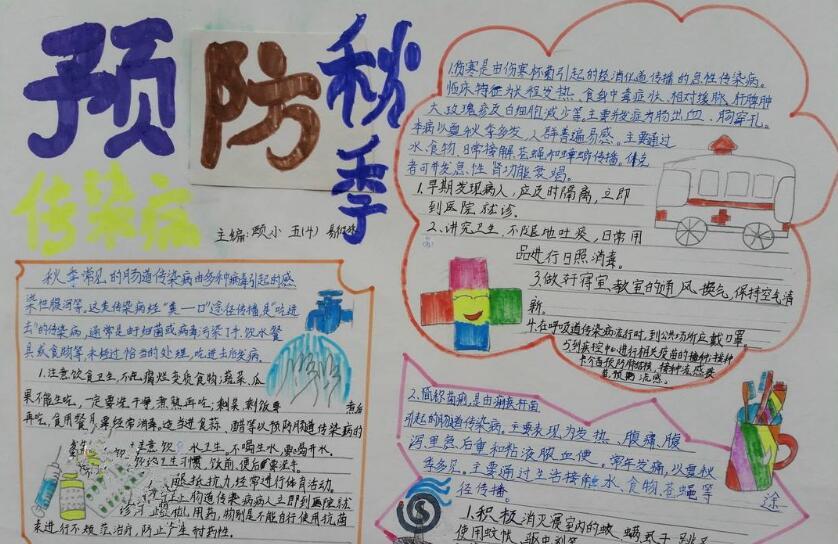 预防秋季
传染病
主编:顾小 五(4)
秋季常见的肠道传染病由多种病毒引起的感
染性腹泻等,这类传染病经“粪—口”途径传播是“吃进
去”的传染病,通常是细菌或病毒污染了手、饮水、餐
具或食物等,未经过恰当的处理,吃进去后发病。
1.注意饮食卫生,不吃腐烂变质食物;蔬菜、瓜
果不能生吃,一定要洗干净,煮熟再吃;剩菜剩饭要 煮后
再吃,食用餐具要经常消毒,适当进食蒜、醋等以预防肠道传染病的
注意饮 水卫生,不喝生水,要喝开水。
卫生习惯,饮前,便后要洗手。
抵抗力,经常进行体育活动。
肠道传染病病人立即到医院就
用药,特别是不能自行使用抗菌
素进行不规范治疗,防止产生耐药性。
1.伤寒是由伤寒杆菌引起的经消化道传播的急性传染病。
临床特征为长程发热、食身中毒症状、相对缓脉、肝脾肿
大、玫瑰疹及白细胞减少等。主要并发症为肠出血、肠穿孔。
本病以夏秋季多发,人群普遍易感。主要通过
水、食物、日常接触、苍蝇和蟑螂传播。
者可并发急性肾功能衰竭。
1.早期发现病人,应及时隔离,立即
到医院就诊。
2.讲究卫生,不随地吐痰,日常用
品进行日照消毒。
3.做好寝室、教室的通风、换气,保持空气清
新。
4.在呼吸道传染病流行时,到公共场所应戴口罩。
5.到疾控中心进行相关疫苗的接种,接种
2.简称菌痢,是由痢疾杆菌
引起的肠道传染病,主要表现为发热、腹痛、腹
泻、里急后重和粘液脓血便。常年发病,以夏秋
季多见。主要通过生活接触、水、食物、苍蝇等 途
径传播。
1.积极消灭居室内的蚊、螨、
使用蚊帐、驱虫剂等